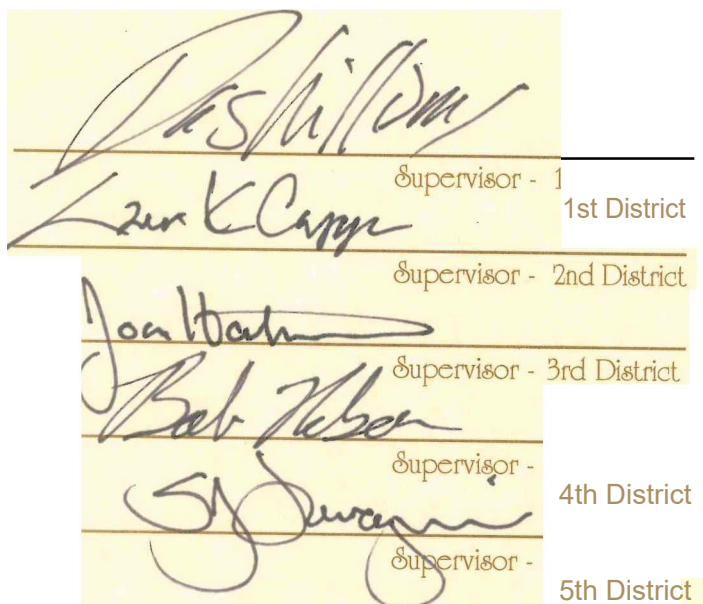 Das Williams
Supervisor - 1
1st District
Laura K Capps
Supervisor - 2nd District
Joan Hartmann
Supervisor - 3rd District
Bob Nelson
Supervisor -
4th District
Supervisor -
5th District